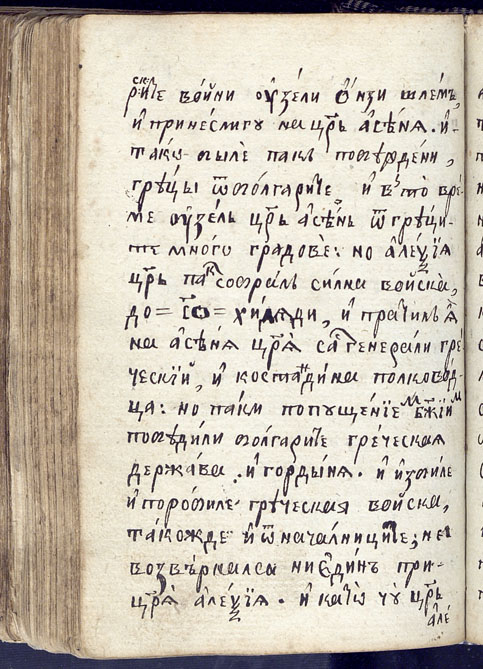 рските войни оузели ѻнзи шлемъ,
и принеслигу на цр҃ь асѣня. и
тако быле пакъ побѣрдени,
гръцы ѿ болгарите и в то вре
ме оузелъ цр҃ь асѣнь ѿ гръци
те много градове: но алеѯїя
цр҃ь пак собралъ силна войска,
до = = хиляди, и пратилъ я
на асѣня цр҃я са генерали гре
ческїи, и костадина полковод
ца: но паки попущенїемъ бж҃їим
победили болгарите греческая
держава и гордыня. и избиле
и поробиле гръческая войска,
такожде и ѿ началниците; не
возвърналса ниединъ при
цр҃я алеѯїя. и като чу цр҃ь
але